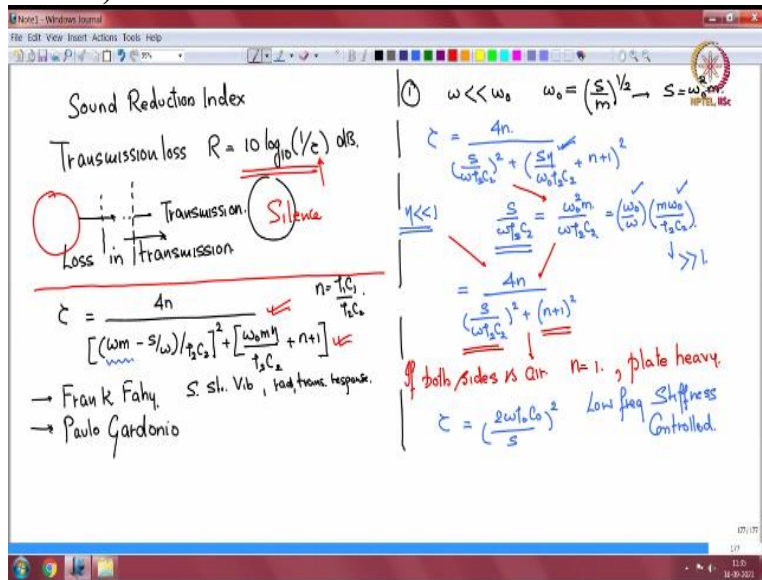 Note1 - Windows Journal
File Edit View Insert Actions Tools Help
NPTEL, IISc
Sound Reduction Index
Transmission loss R = 10 log₁₀ (1/τ) dB.
Transmission. Silence
Loss in transmission
τ = 4n / [(ωm - s/ω)/ρ₂C₂]² + [ω₀mη/ρ₂C₂ + n+1]
n = ρ₁C₁/ρ₂C₂.
→ Frank Fahy. S. St. Vib, rad, trans. response.
→ Paulo Gardonio
① ω << ω₀ ω₀ = (s/m)^1/2 → s = ω₀²m.
τ = 4n. / (s/ωρ₂C₂)² + (sη/ω₀ρ₂C₂ + n+1)²
η<<1 s/ωρ₂C₂ = ω₀²m/ωρ₂C₂ = (ω₀/ω)(mω₀/ρ₂C₂)
>>1.
= 4n / (s/ωρ₂C₂)² + (n+1)²
If both sides is air n=1. , plate heavy.
τ = (2ωρ₀C₀/s)² Low freq Stiffness
Controlled.
177/177
177
11:35
14-09-2021